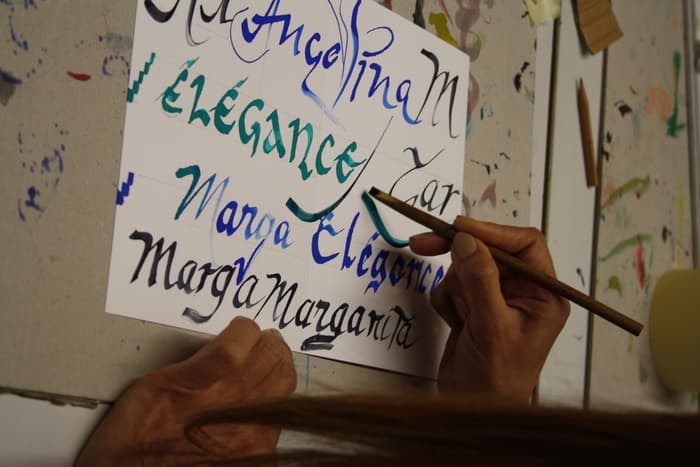 Angelina M
ÉLÉGANCE
Zar
Marga Élégance
Marga Margarita